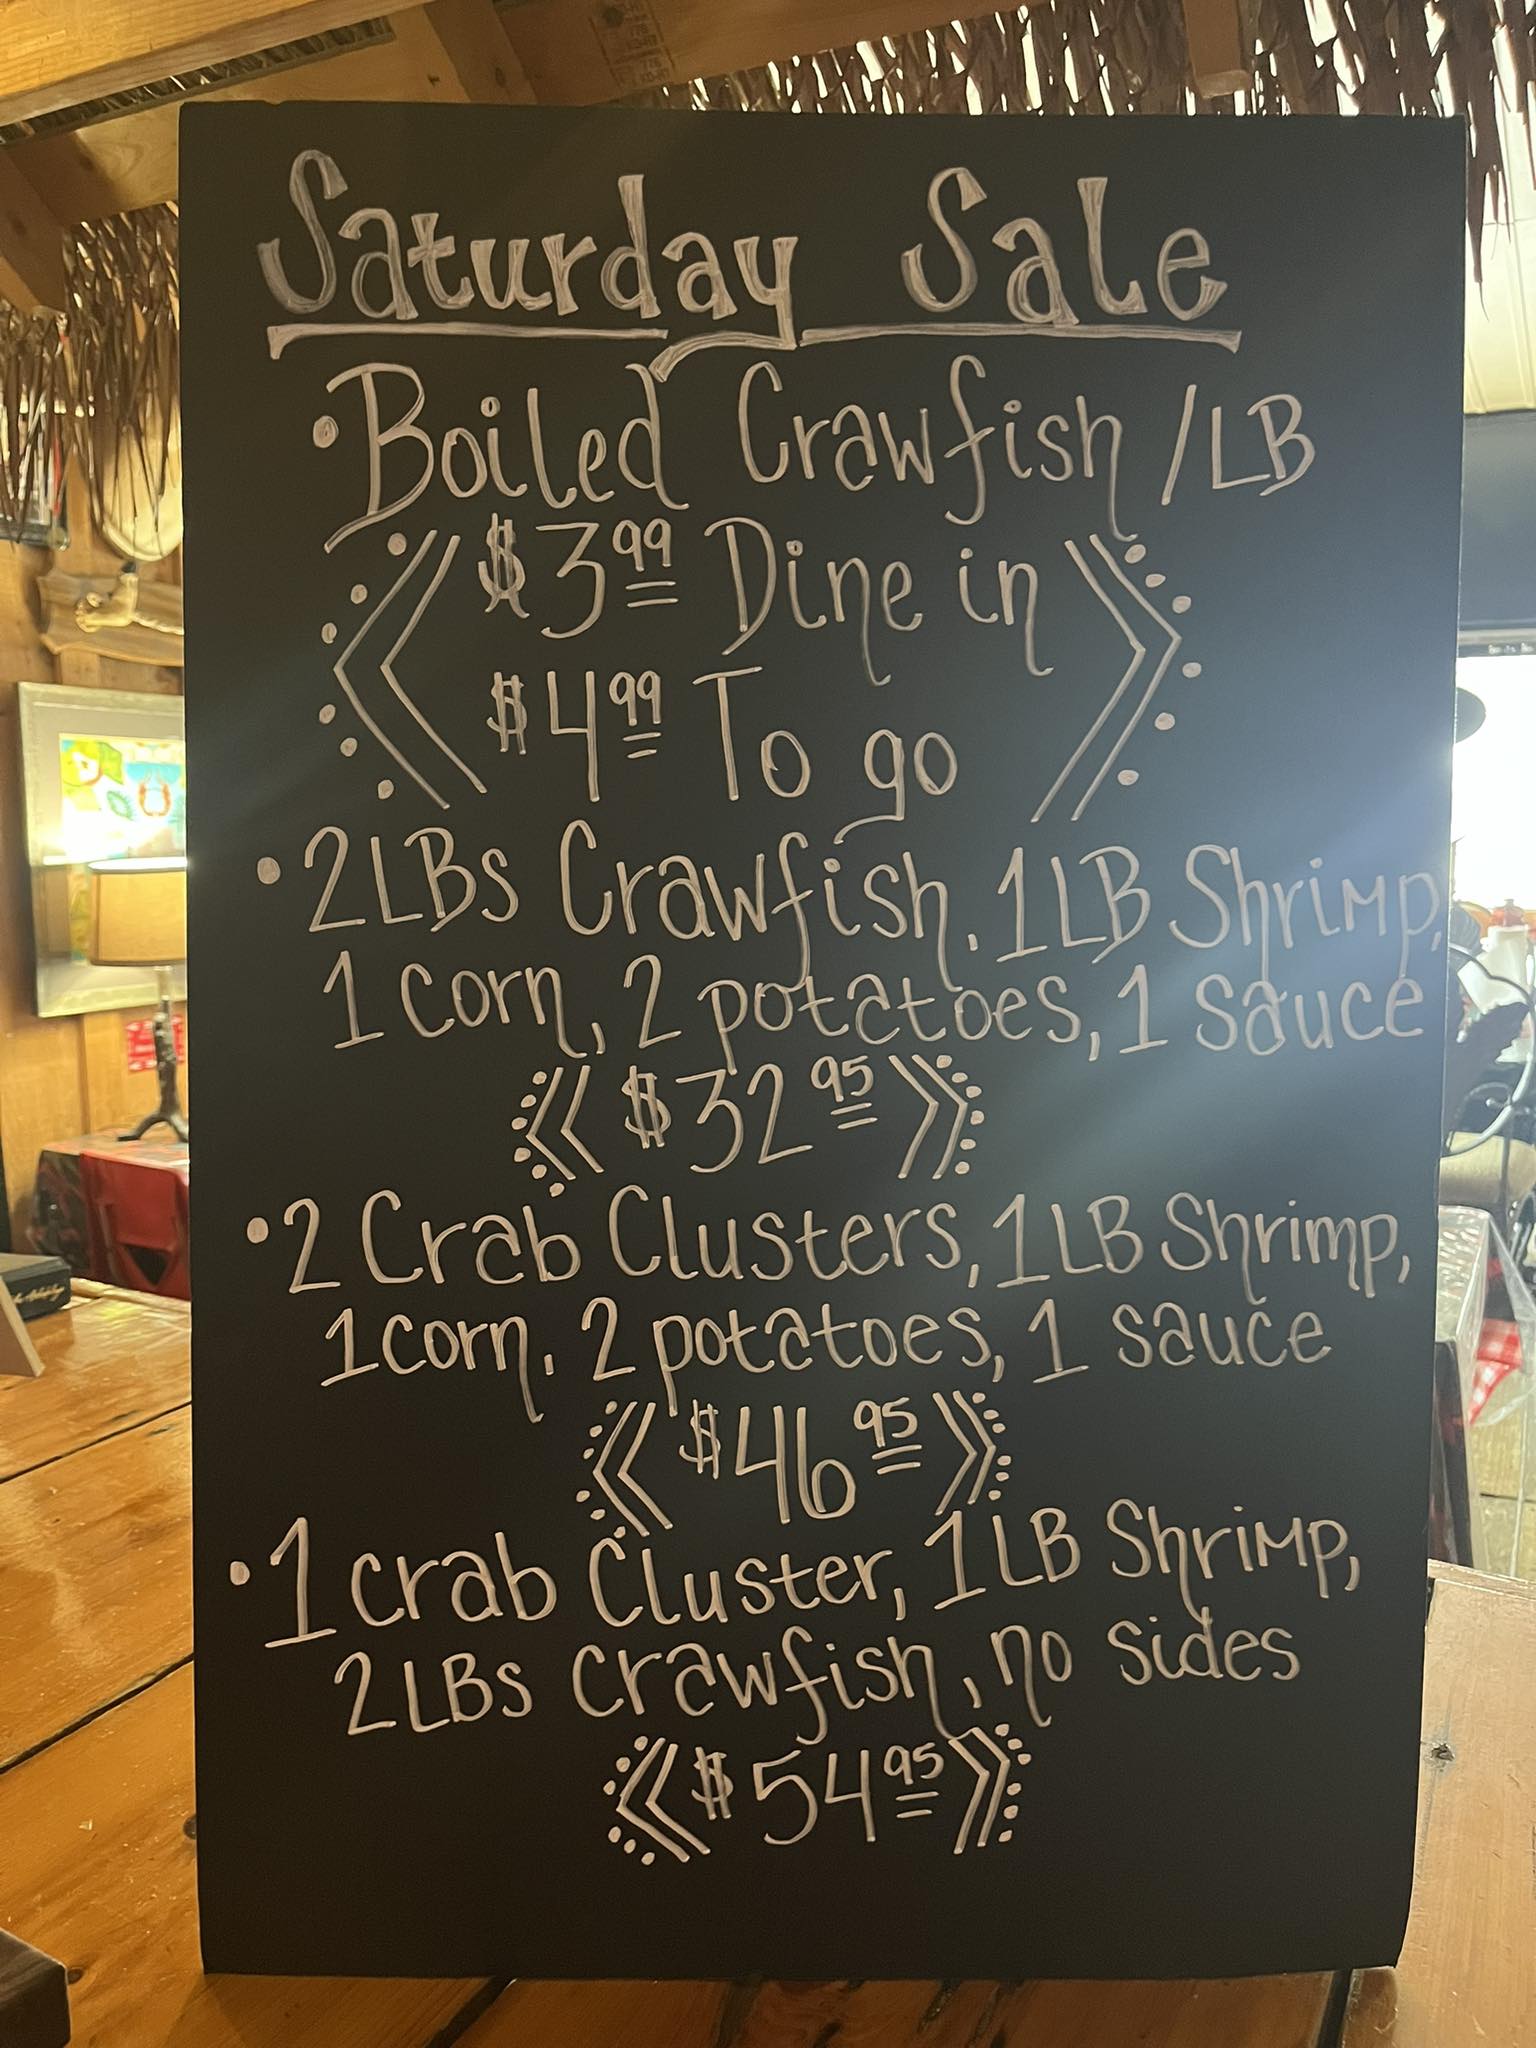 Saturday Sale
• Boiled Crawfish /LB
$3.99 Dine in
$4.99 To go
• 2LBs Crawfish, 1LB Shrimp,
1 corn, 2 potatoes, 1 sauce
$32.95
• 2 Crab Clusters, 1LB Shrimp,
1 corn, 2 potatoes, 1 sauce
$46.95
• 1 crab Cluster, 1LB Shrimp,
2LBs crawfish, no sides
$54.95